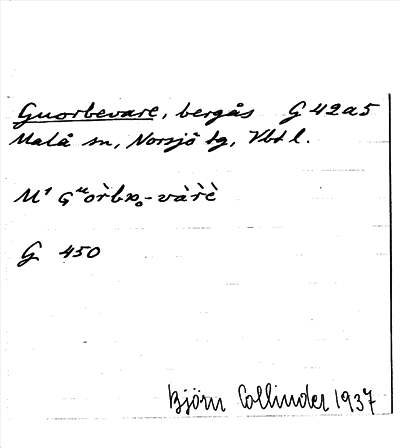 Guorbevare, bergås G 42a5
Malå sn, Norsjö tg, Vbtl.
M¹
G 450
Björn Collinder 1937